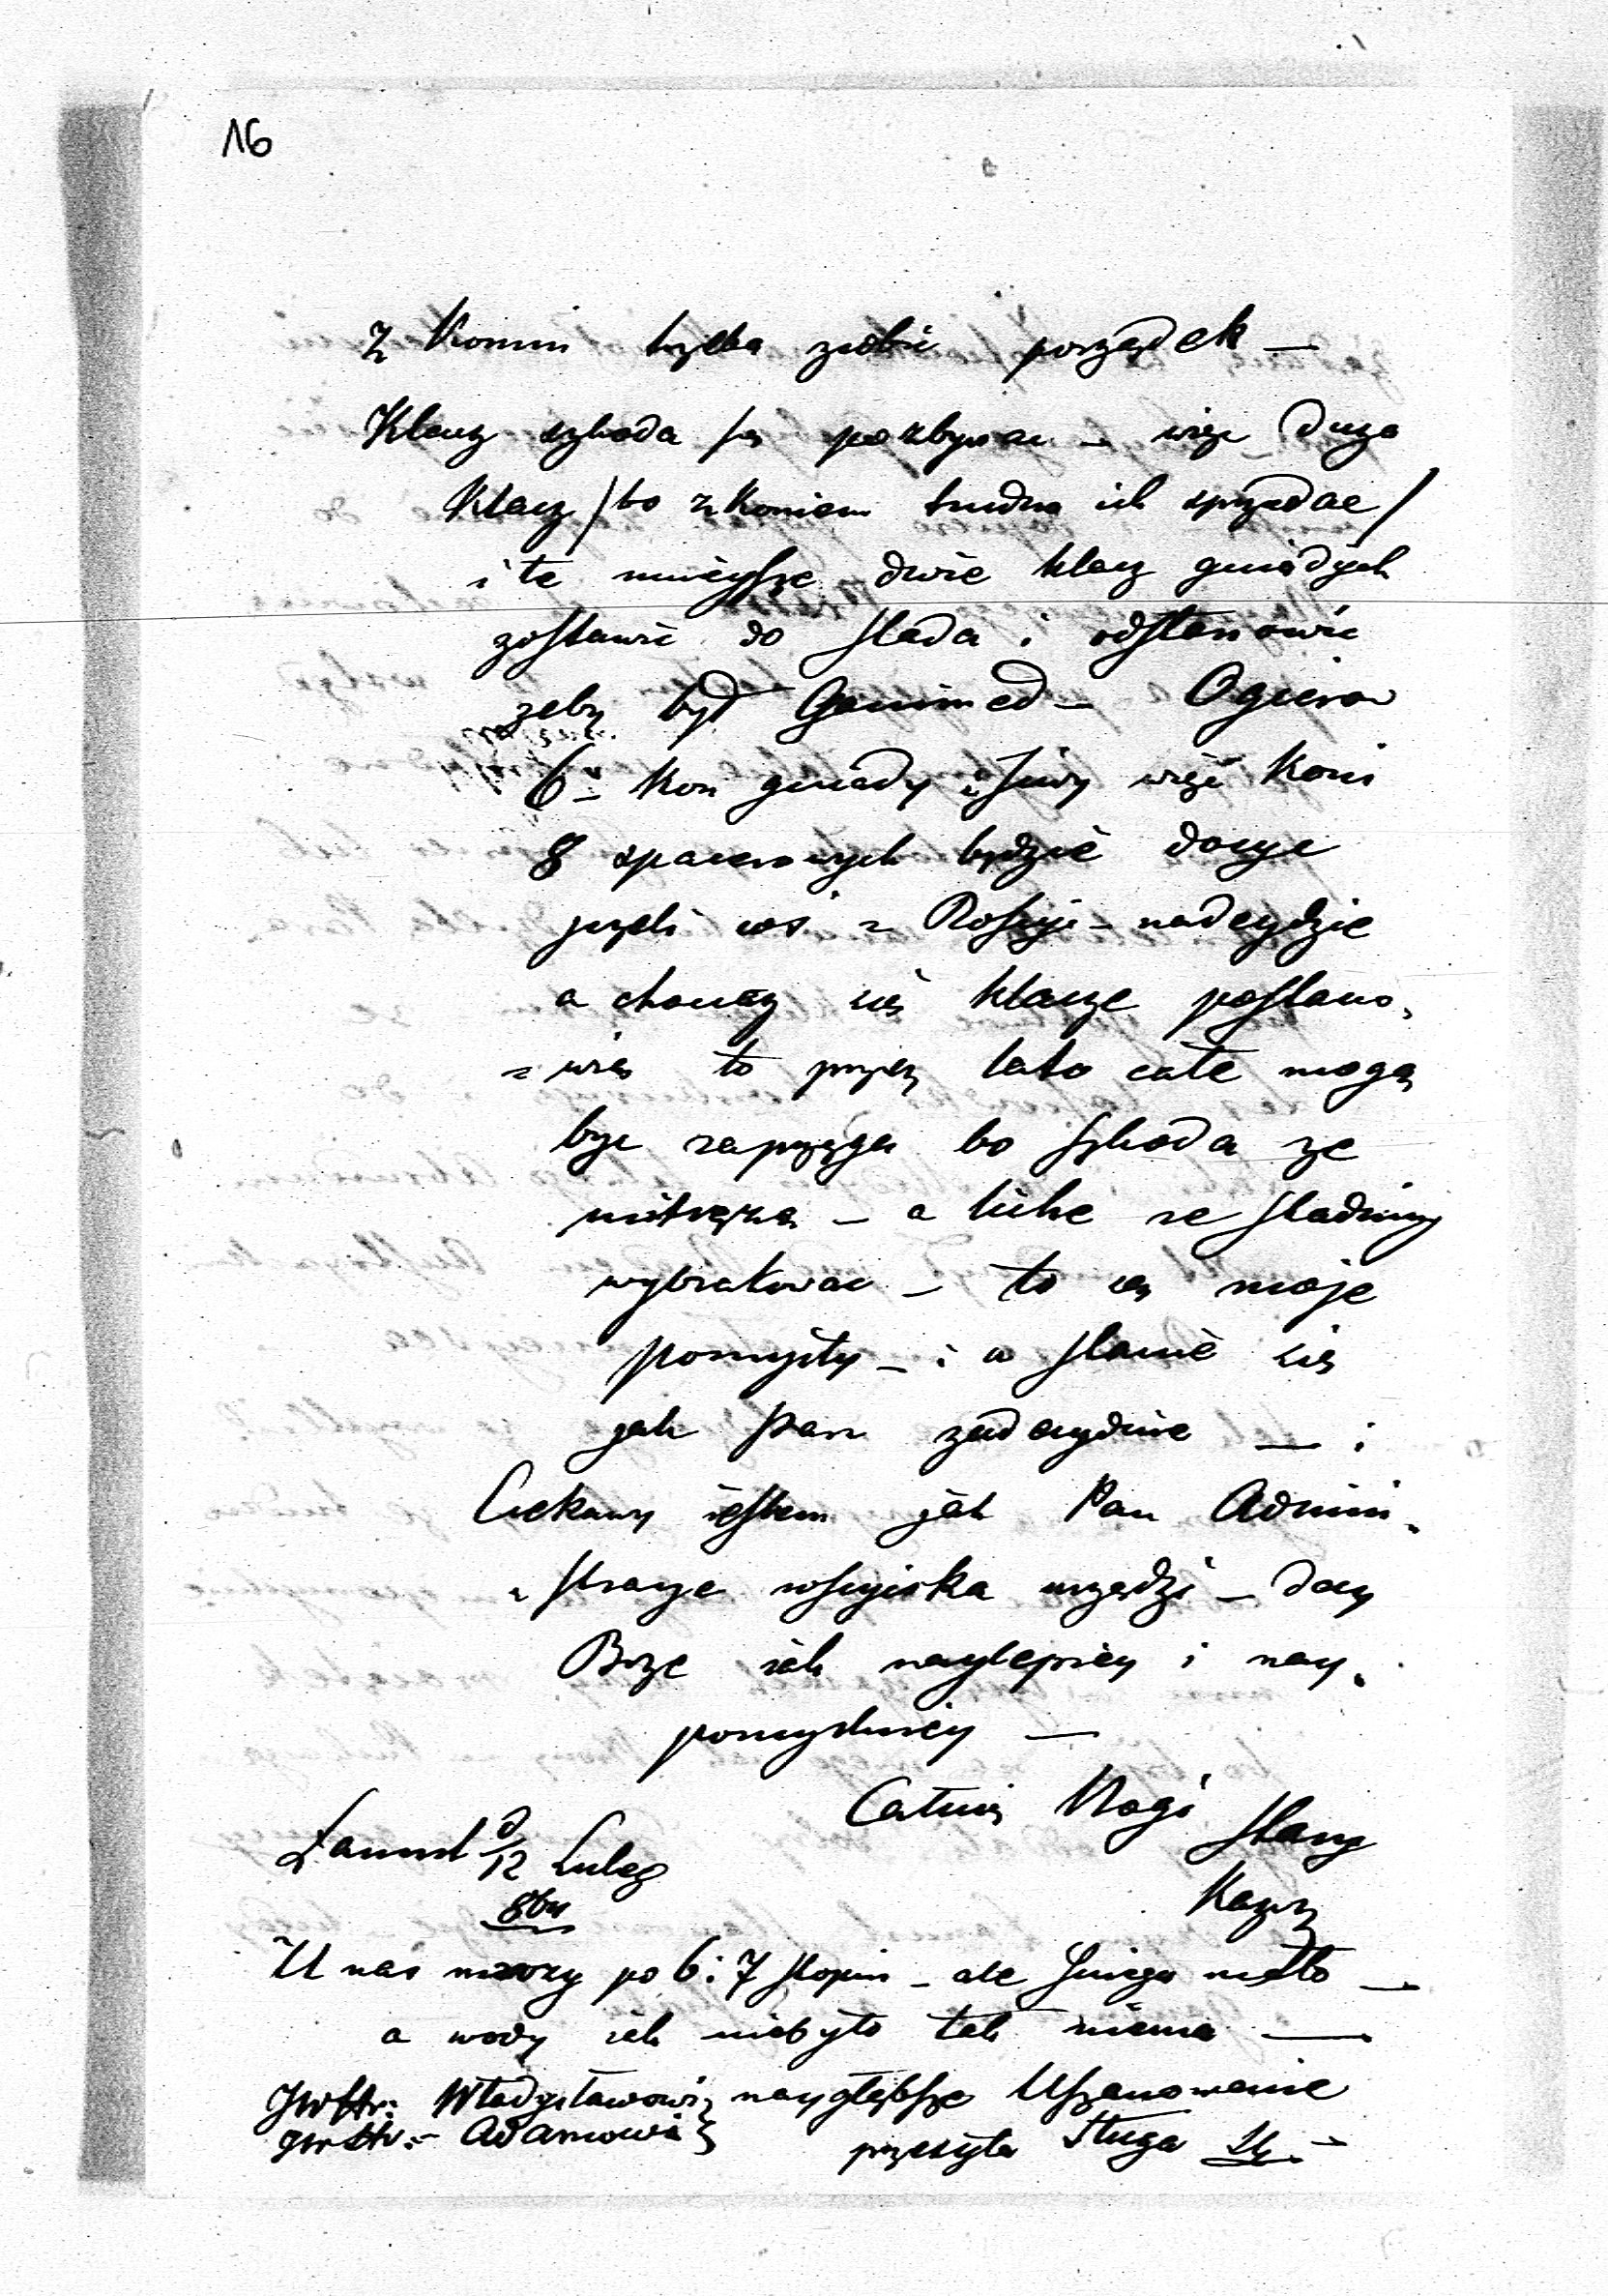 16
z Konmi trzeba zrobic porządek —
Klacz szkoda się pozbywac — więc duza
Klacz / bo z Koniem trudno ich sprzedac /
i te mnieysze dwie klacz gniadych
zostawic do stada i odstanowic
zeby był Ganimed — Ogierow
6 — Kon gniady i siwy więc koni
8 spacerowych będzie dosyc
jezeli cos z Rossyi — nadeydzie
a chociaz się klacze postano„
„wią to przez lato całe mogą
byc zaprzęga bo szkoda ze
mitręzą — a liche ze stadniny
wybrakowac — to są moje
pomysły — i w stanie się
jak Pan zadecyduie — :
Ciekawy iestem jak Pan Admini„
„stracye rossyiska urządzi — day
Boze iak naylepiey i nay„
pomyslniey —
Całuię Nogi
Stary
Kazrz
Łancut d 12 Luteg
8bu
U nas mrozy po 6 i 7 stopni — ale sniegu mało —
a wody iak niebyło tak niema —
JW Hr: Władysławowi naygłębsze Uszanowanie
JW Hr:— Adamowi
przesyła Sługa